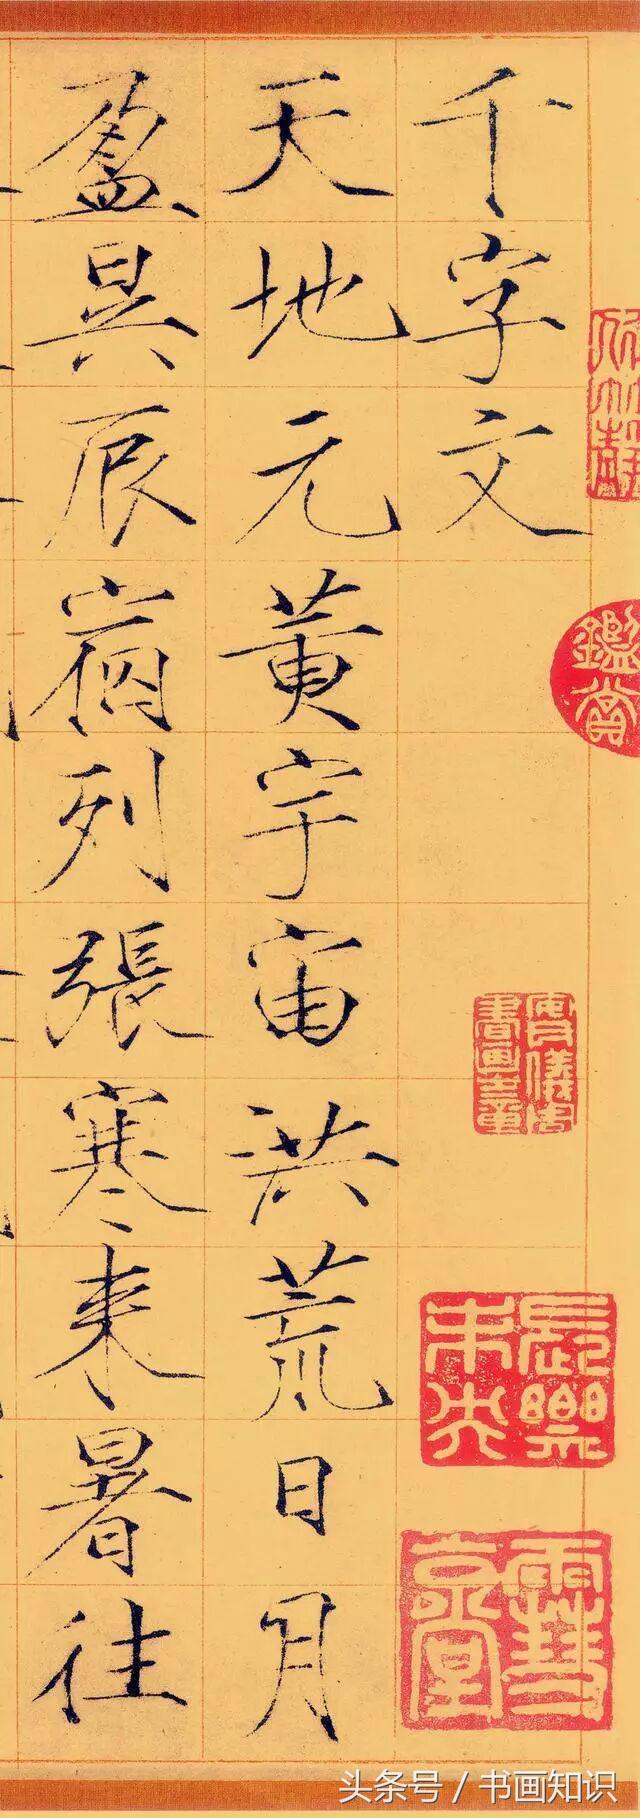 千字文
天地元黄宇宙洪荒日月
盈昃辰宿列張寒来暑往
鑑賞
頭条号 / 书画知识